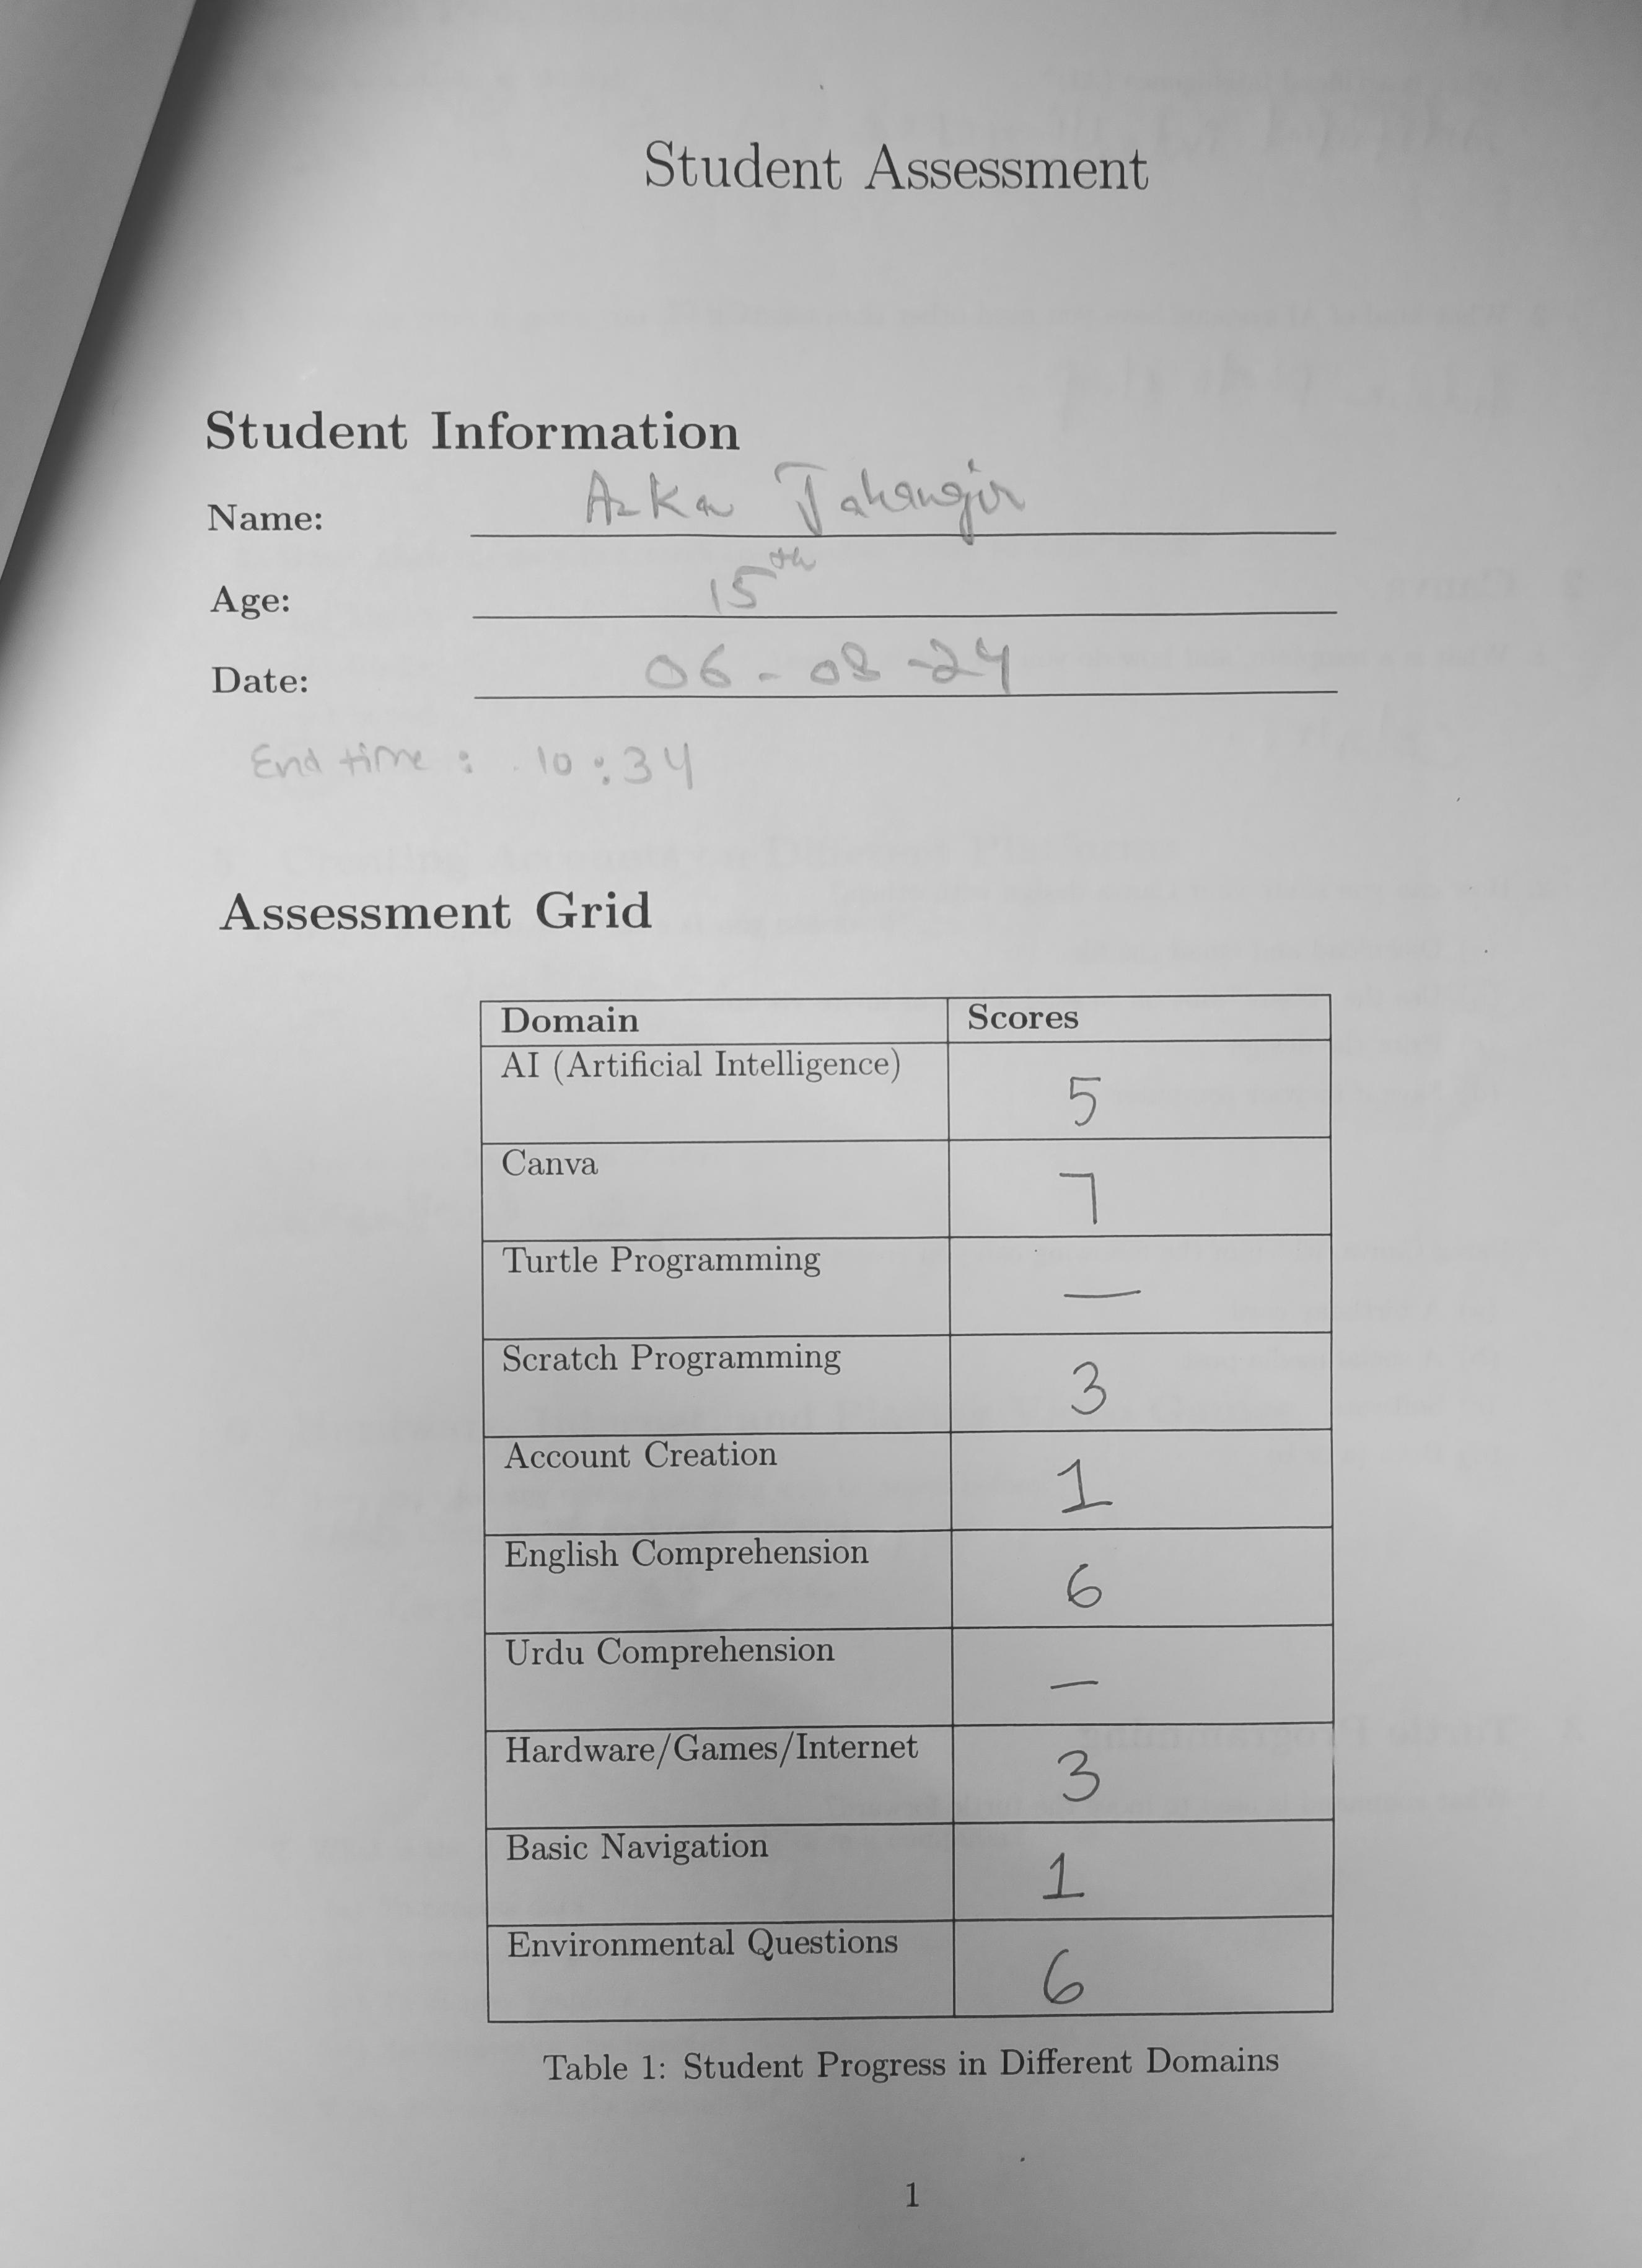 Student Assessment
Student Information
Name: Azka Jahangir
Age: 15th
Date: 06-08-24
End time: 10:34
Assessment Grid
Domain Scores
AI (Artificial Intelligence) 5
Canva 7
Turtle Programming —
Scratch Programming 3
Account Creation 1
English Comprehension 6
Urdu Comprehension —
Hardware/Games/Internet 3
Basic Navigation 1
Environmental Questions 6
Table 1: Student Progress in Different Domains
1